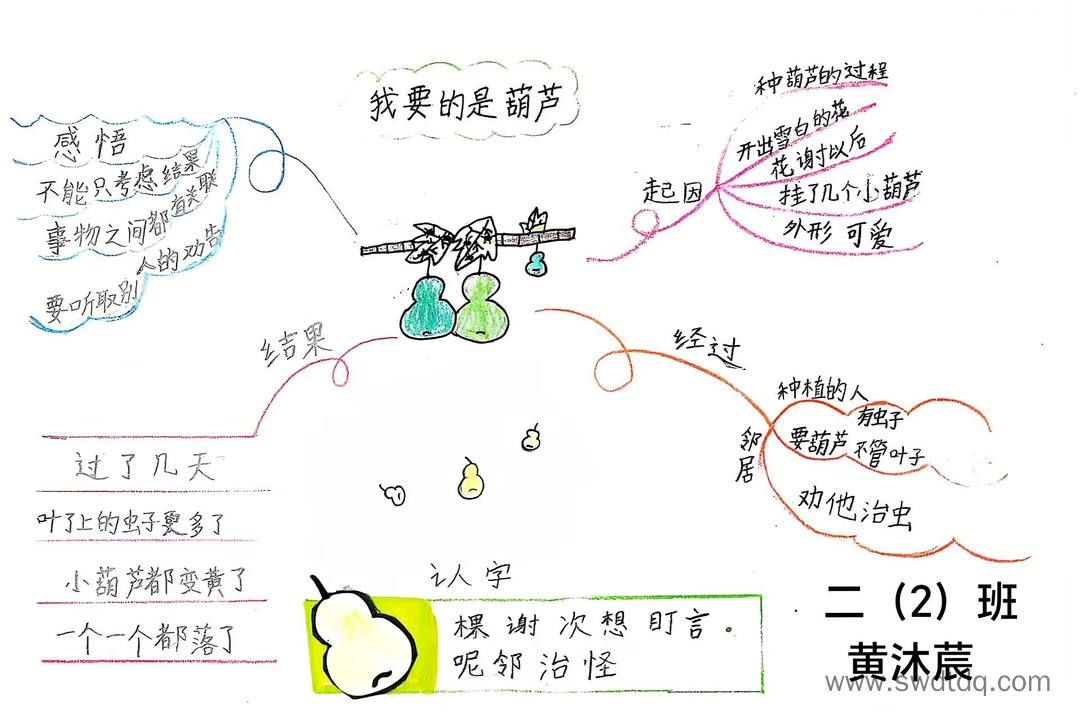 我要的是葫芦
感悟
不能只考虑结果
事物之间都有关联
要听取别人的劝告
起因
种葫芦的过程
开出雪白的花
花谢以后
挂了几个小葫芦
外形可爱
经过
种植的人
有虫子
要葫芦
不管叶子
邻居
劝他治虫
结果
过了几天
叶了上的虫子更多了
小葫芦都变黄了
一个一个都落了
认字
棵谢次想盯言.
呢邻治怪
二（2）班
黄沐莀
www.swdtdq.com